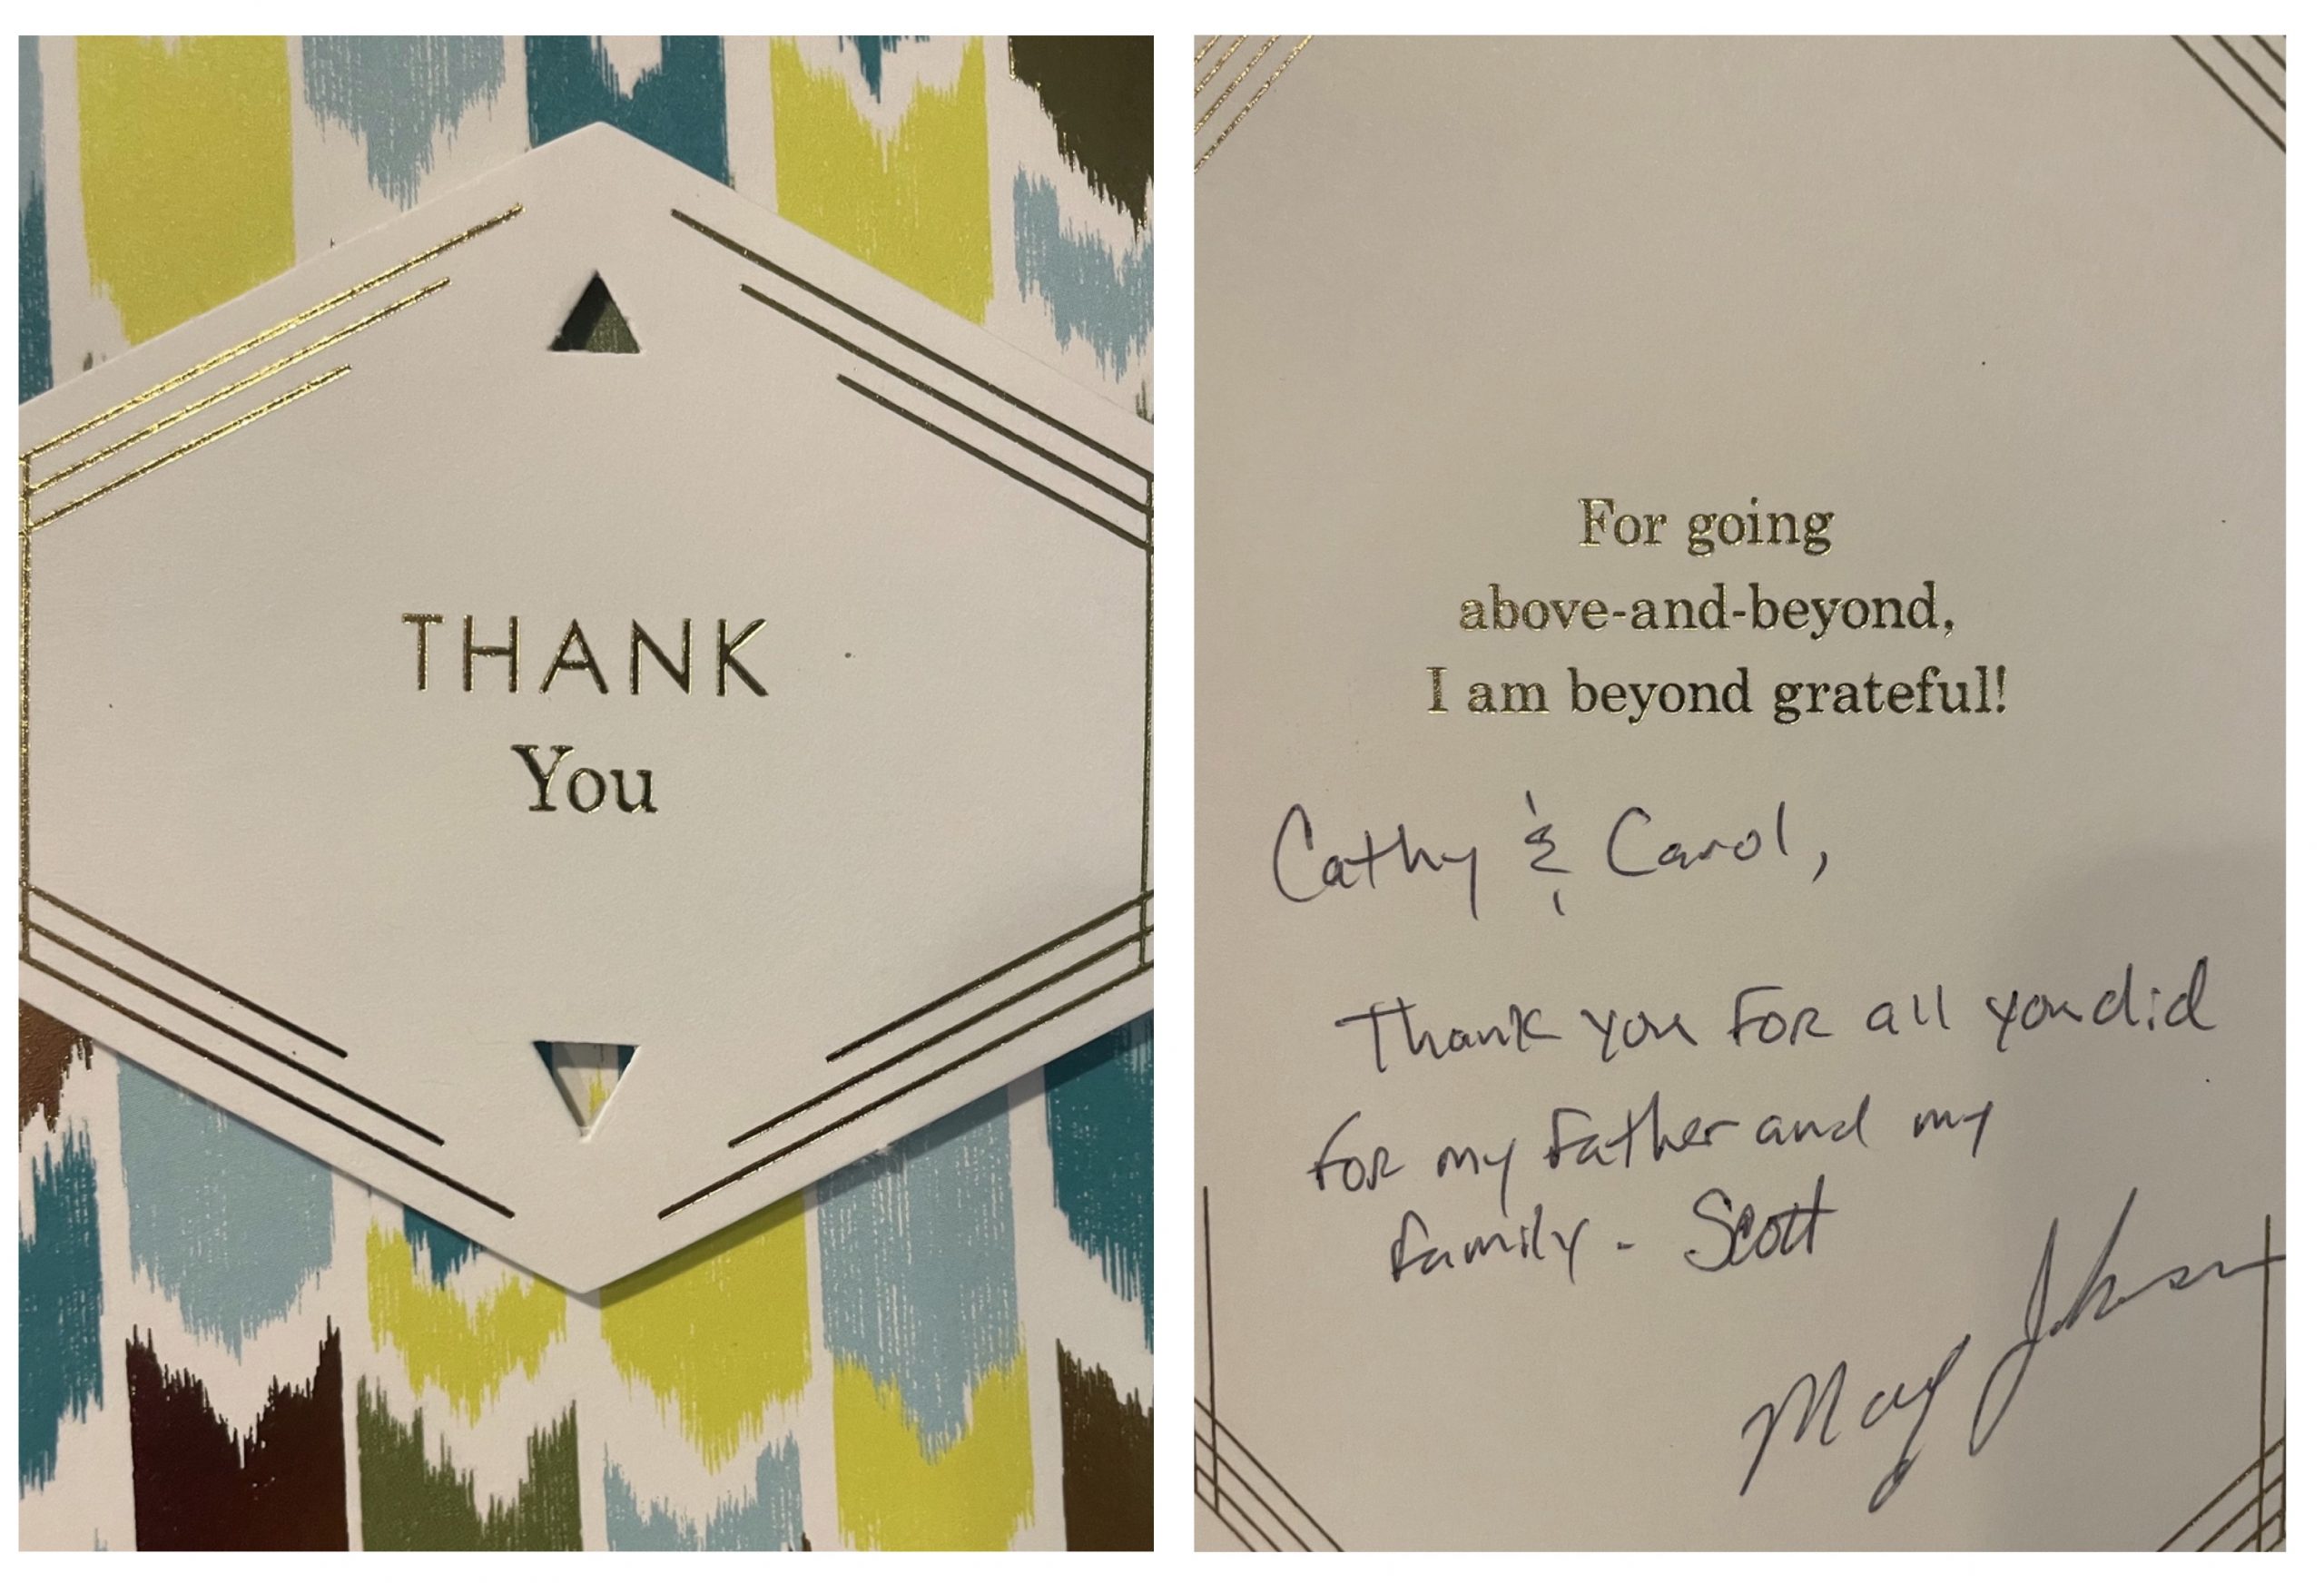 THANK
You
For going
above-and-beyond,
I am beyond grateful!
Cathy & Carol,
Thank you For all you did
For my Father and my
Family - Scott
Mary Johnson